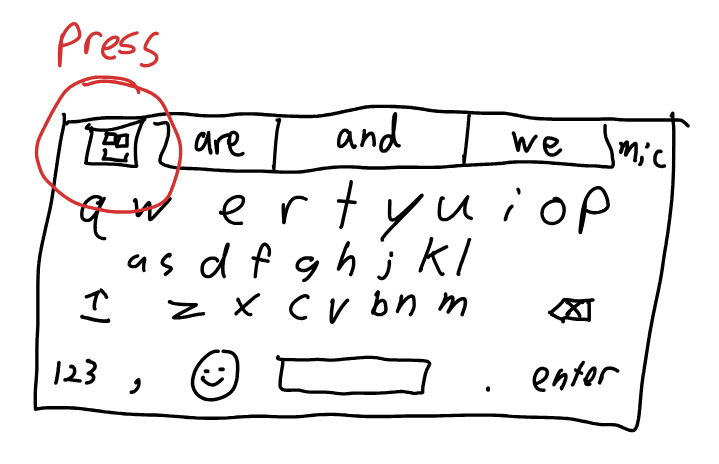 Press
are and we mic
q w e r t y u i o p
a s d f g h j k l
z x c v b n m
123 , . enter